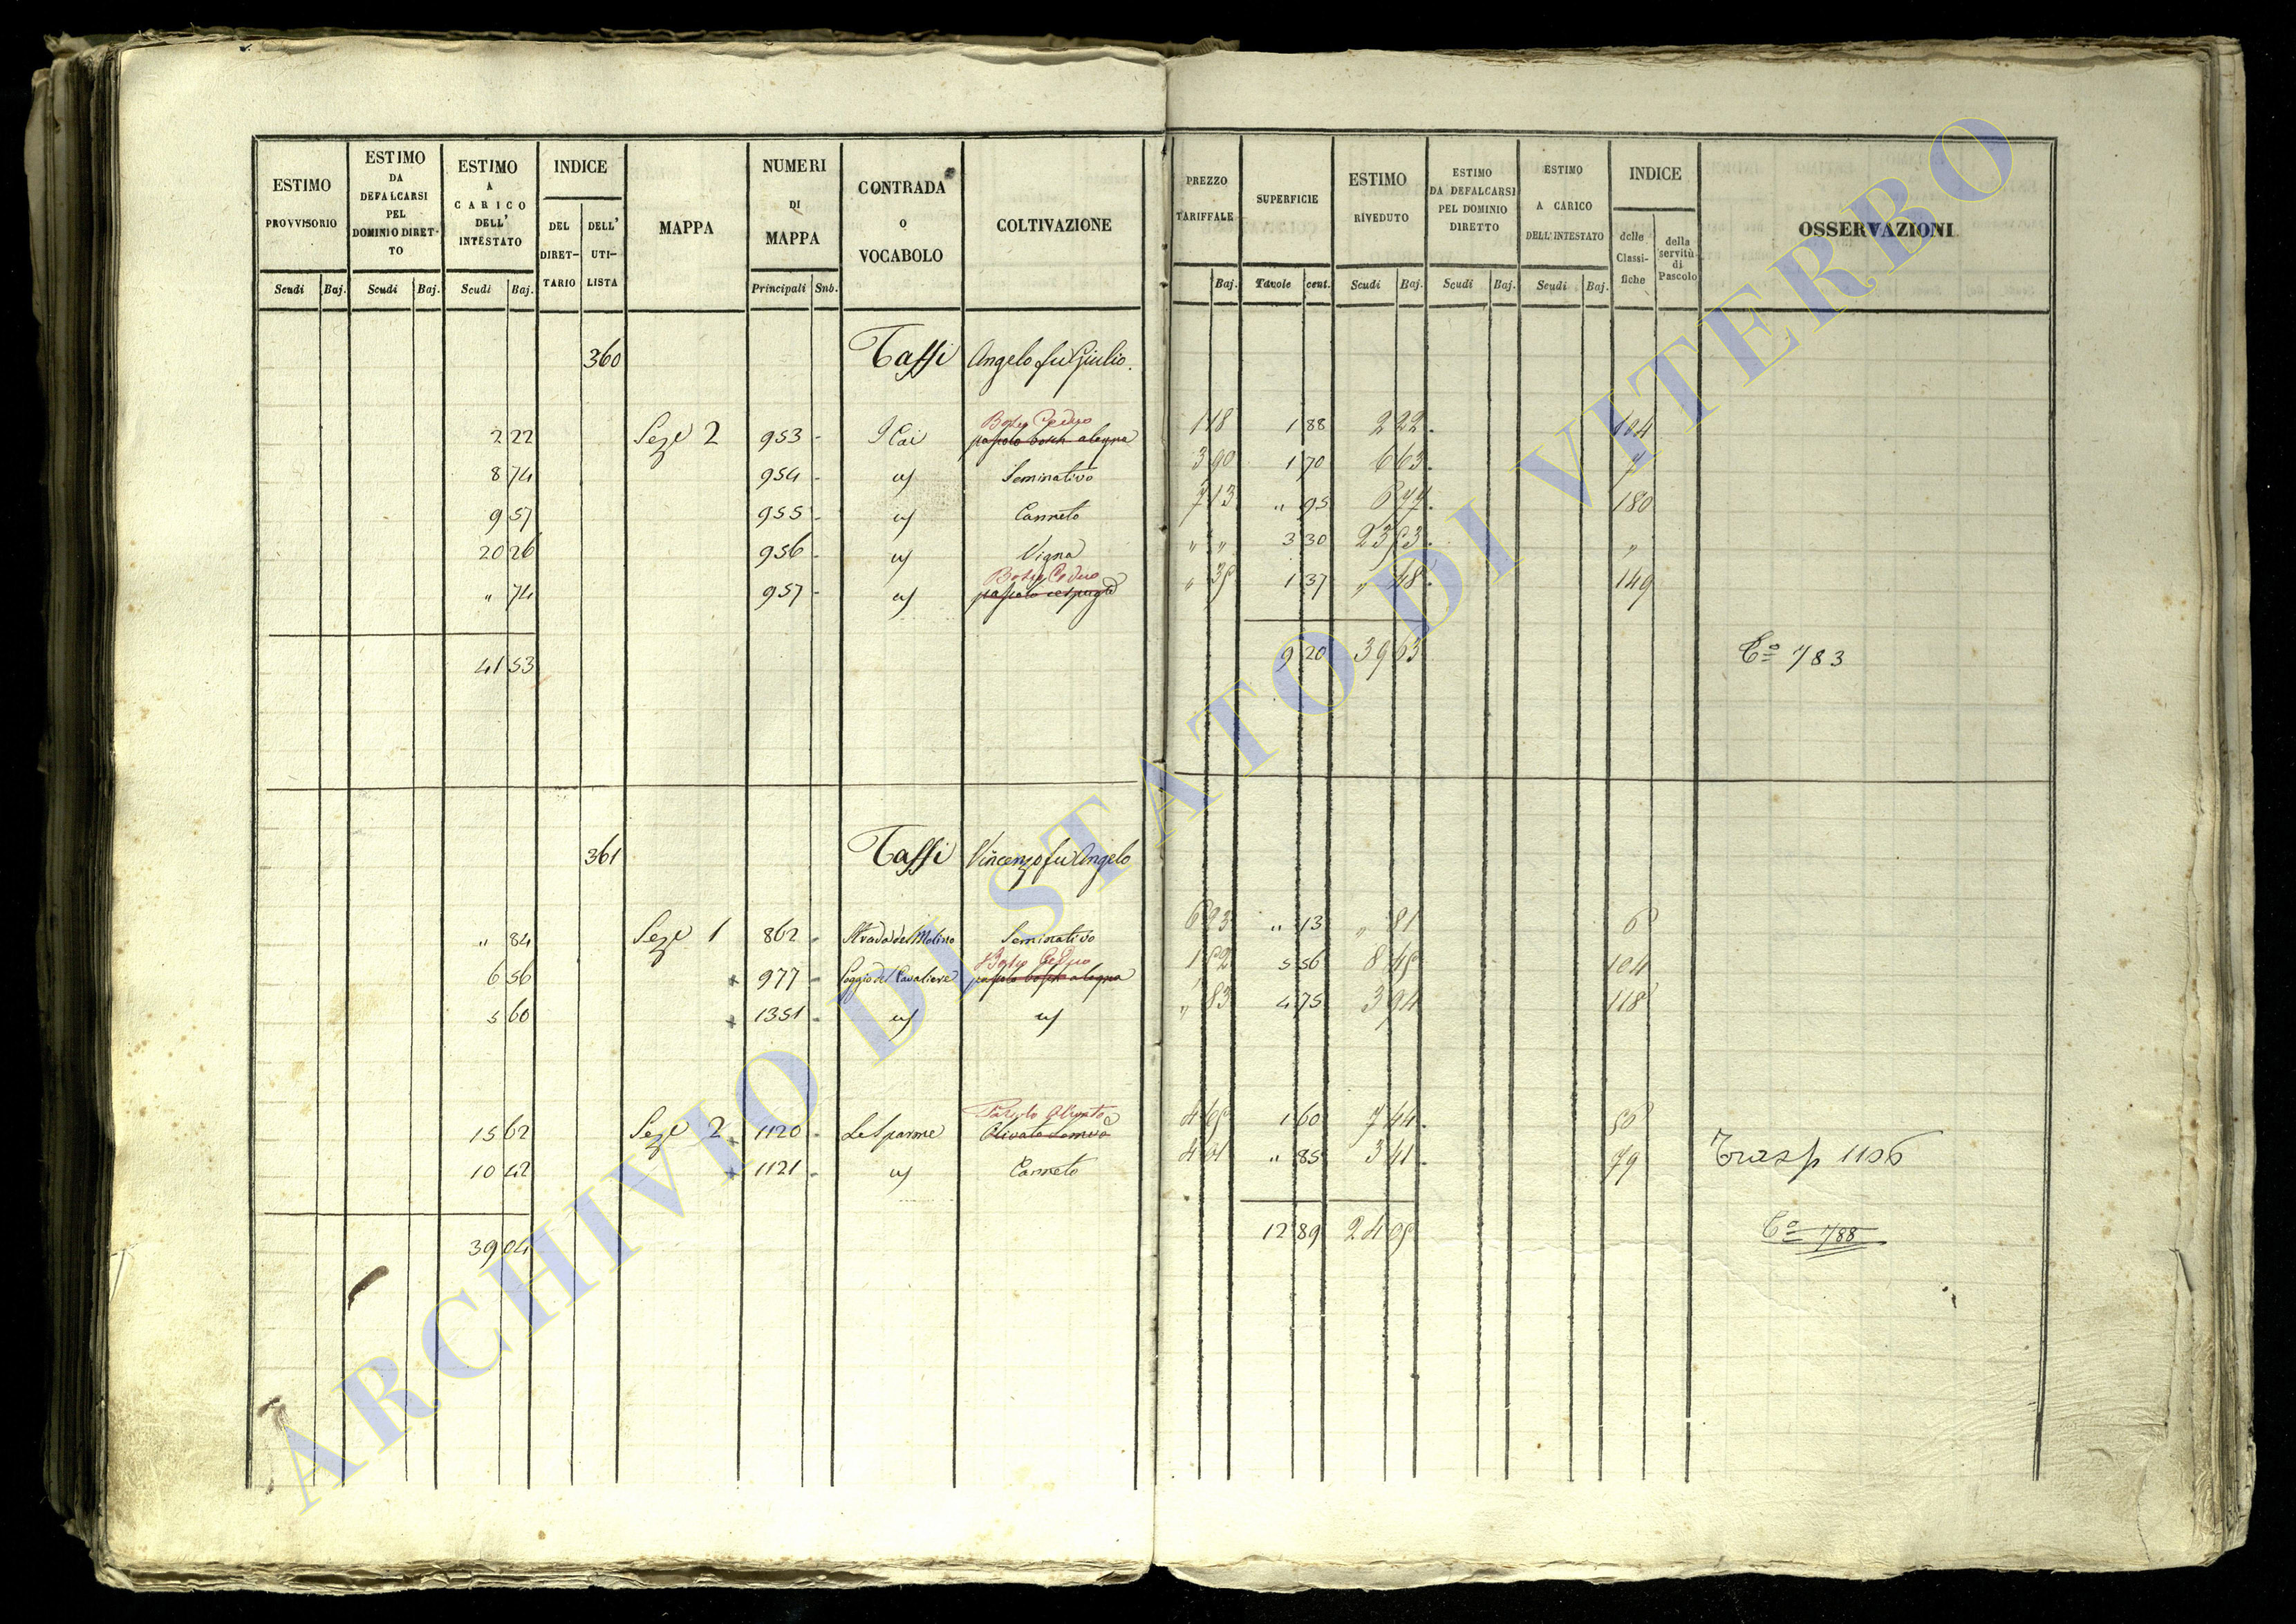 ESTIMO PROVVISORIO
ESTIMO DA DEFALCARSI PEL DOMINIO DIRETTO
ESTIMO A CARICO DELL' INTESTATO
INDICE
DEL DIRETTARIO
DELL' UTILISTA
MAPPA
NUMERI DI MAPPA
CONTRADA o VOCABOLO
COLTIVAZIONE
PREZZO TARIFFALE
SUPERFICIE
ESTIMO RIVEDUTO
ESTIMO DA DEFALCARSI PEL DOMINIO DIRETTO
ESTIMO A CARICO DELL' INTESTATO
INDICE
delle Classifiche
della servitù di Pascolo
OSSERVAZIONI
Scudi Baj. Scudi Baj. Scudi Baj. Principali Snb. Baj. Tavole cent. Scudi Baj. Scudi Baj. Scudi Baj.
360 Taffi Angelo fu Giulio.
Bosco Ceduo
2 22 Seze 2 953 I Cai 1 18 1 88 2 22 104
8 74 954 " Seminativo 3 90 1 70 6 63 "
9 57 955 " Canneto 7 13 " 95 6 77 180
20 26 956 " Vigna " " 3 30 "
Bosco Ceduo
" 74 957 " pascolo cespugl " 35 1 37 " 48 149
41 53 9 20 39 63 Co 783
361 Taffi Vincenzo fu Angelo
" 84 Seze 1 862 Strada del Molino Seminativo 6 23 " 13 " 81 6
Bosco Ceduo
6 56 977 Poggio del Cavaliere 1 52 5 56 8 45 104
5 60 1351 " " " 83 4 75 3 94 118
15 62 Seze 2 1120 Le Sparme 4 65 1 60 7 44 50
10 42 1121 " Canneto 4 01 " 85 3 41 79 Trasp 1106
39 04 12 89 24 05 Co 788
ARCHIVIO DI STATO DI VITERBO